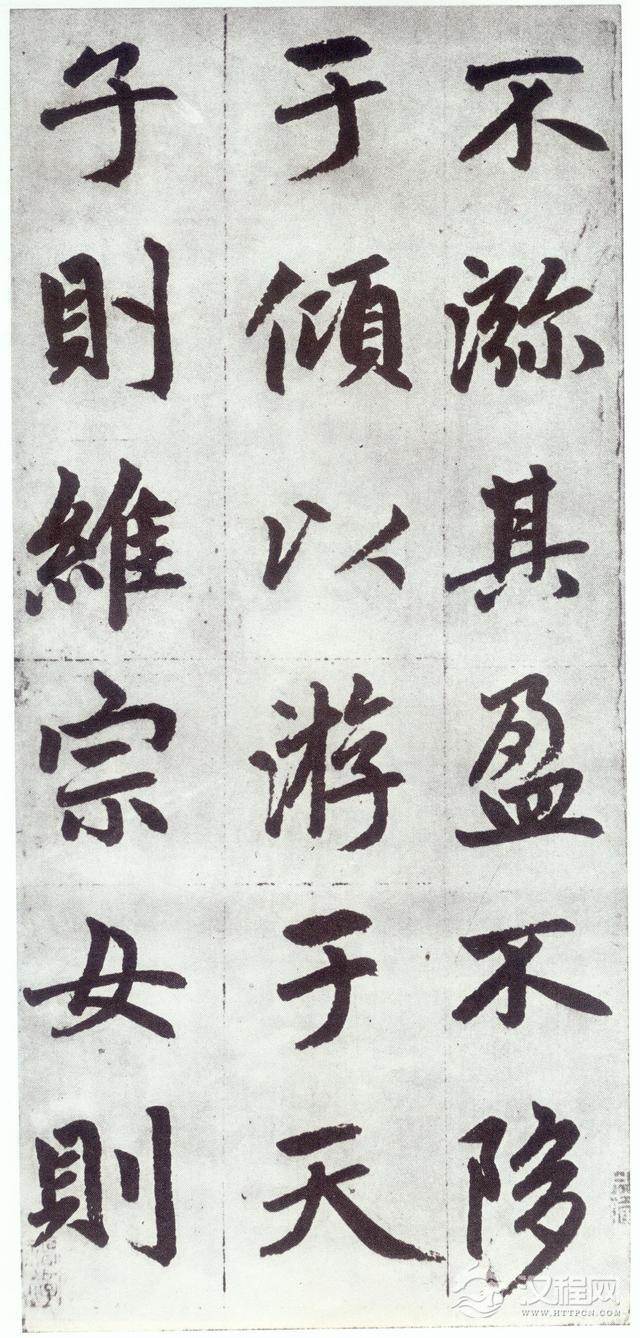 不㳽其盈不陊
于傾以游于天
子則維宗女則
汉程网
WWW.HTTPCN.COM